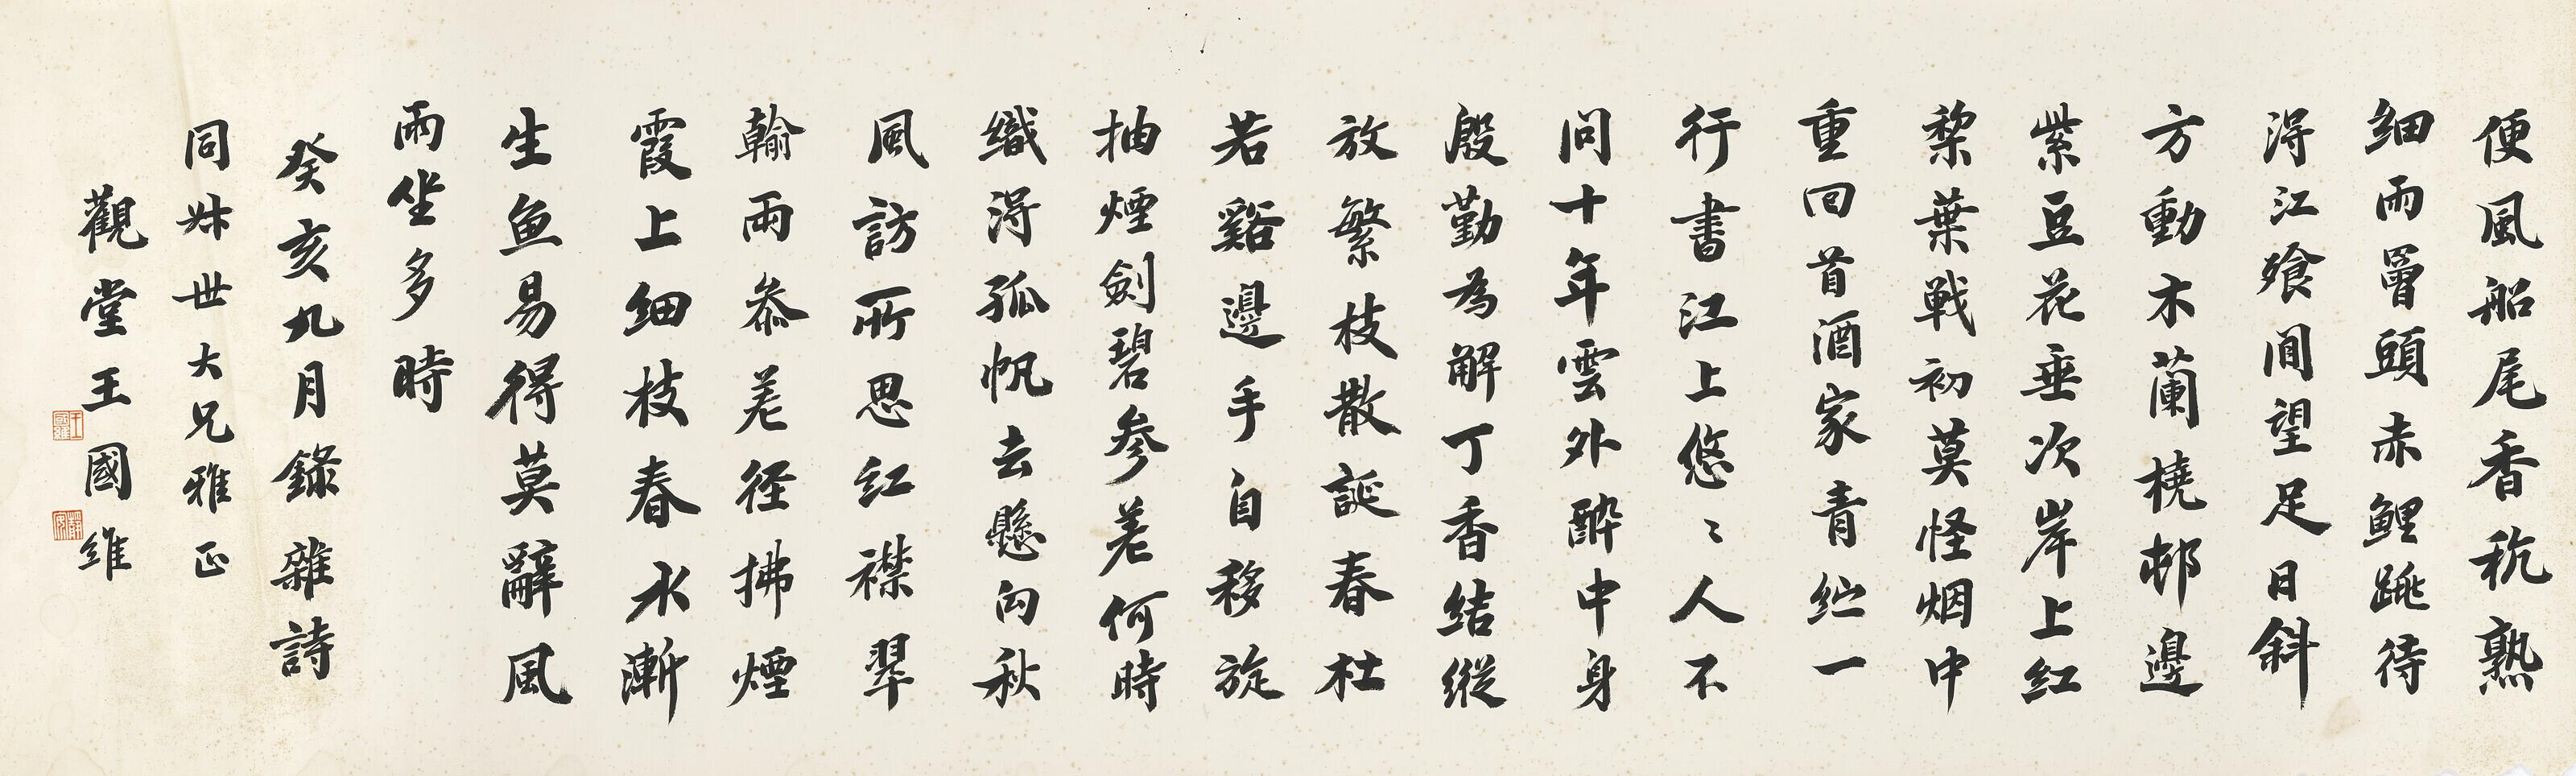 便風船尾香秔熟
細雨罾頭赤鯉跳待
得江飱閒望足日斜
方動木蘭橈邨邊
紫豆花垂次岸上紅
棃葉戰初莫怪烟中
重回首酒家青紵一
行書江上悠〻人不
問十年雲外醉中身
殷勤為解丁香結縱
放繁枝散誕春杜
若谿邊手自移旋
抽煙劍碧參差何時
織得孤帆去懸向秋
風訪所思紅襟翠
翰兩參差径拂煙
霞上細枝春水漸
生魚易得莫辭風
雨坐多時
癸亥九月錄雜詩
同姊世大兄雅正
觀堂王國維
王國維
靜安